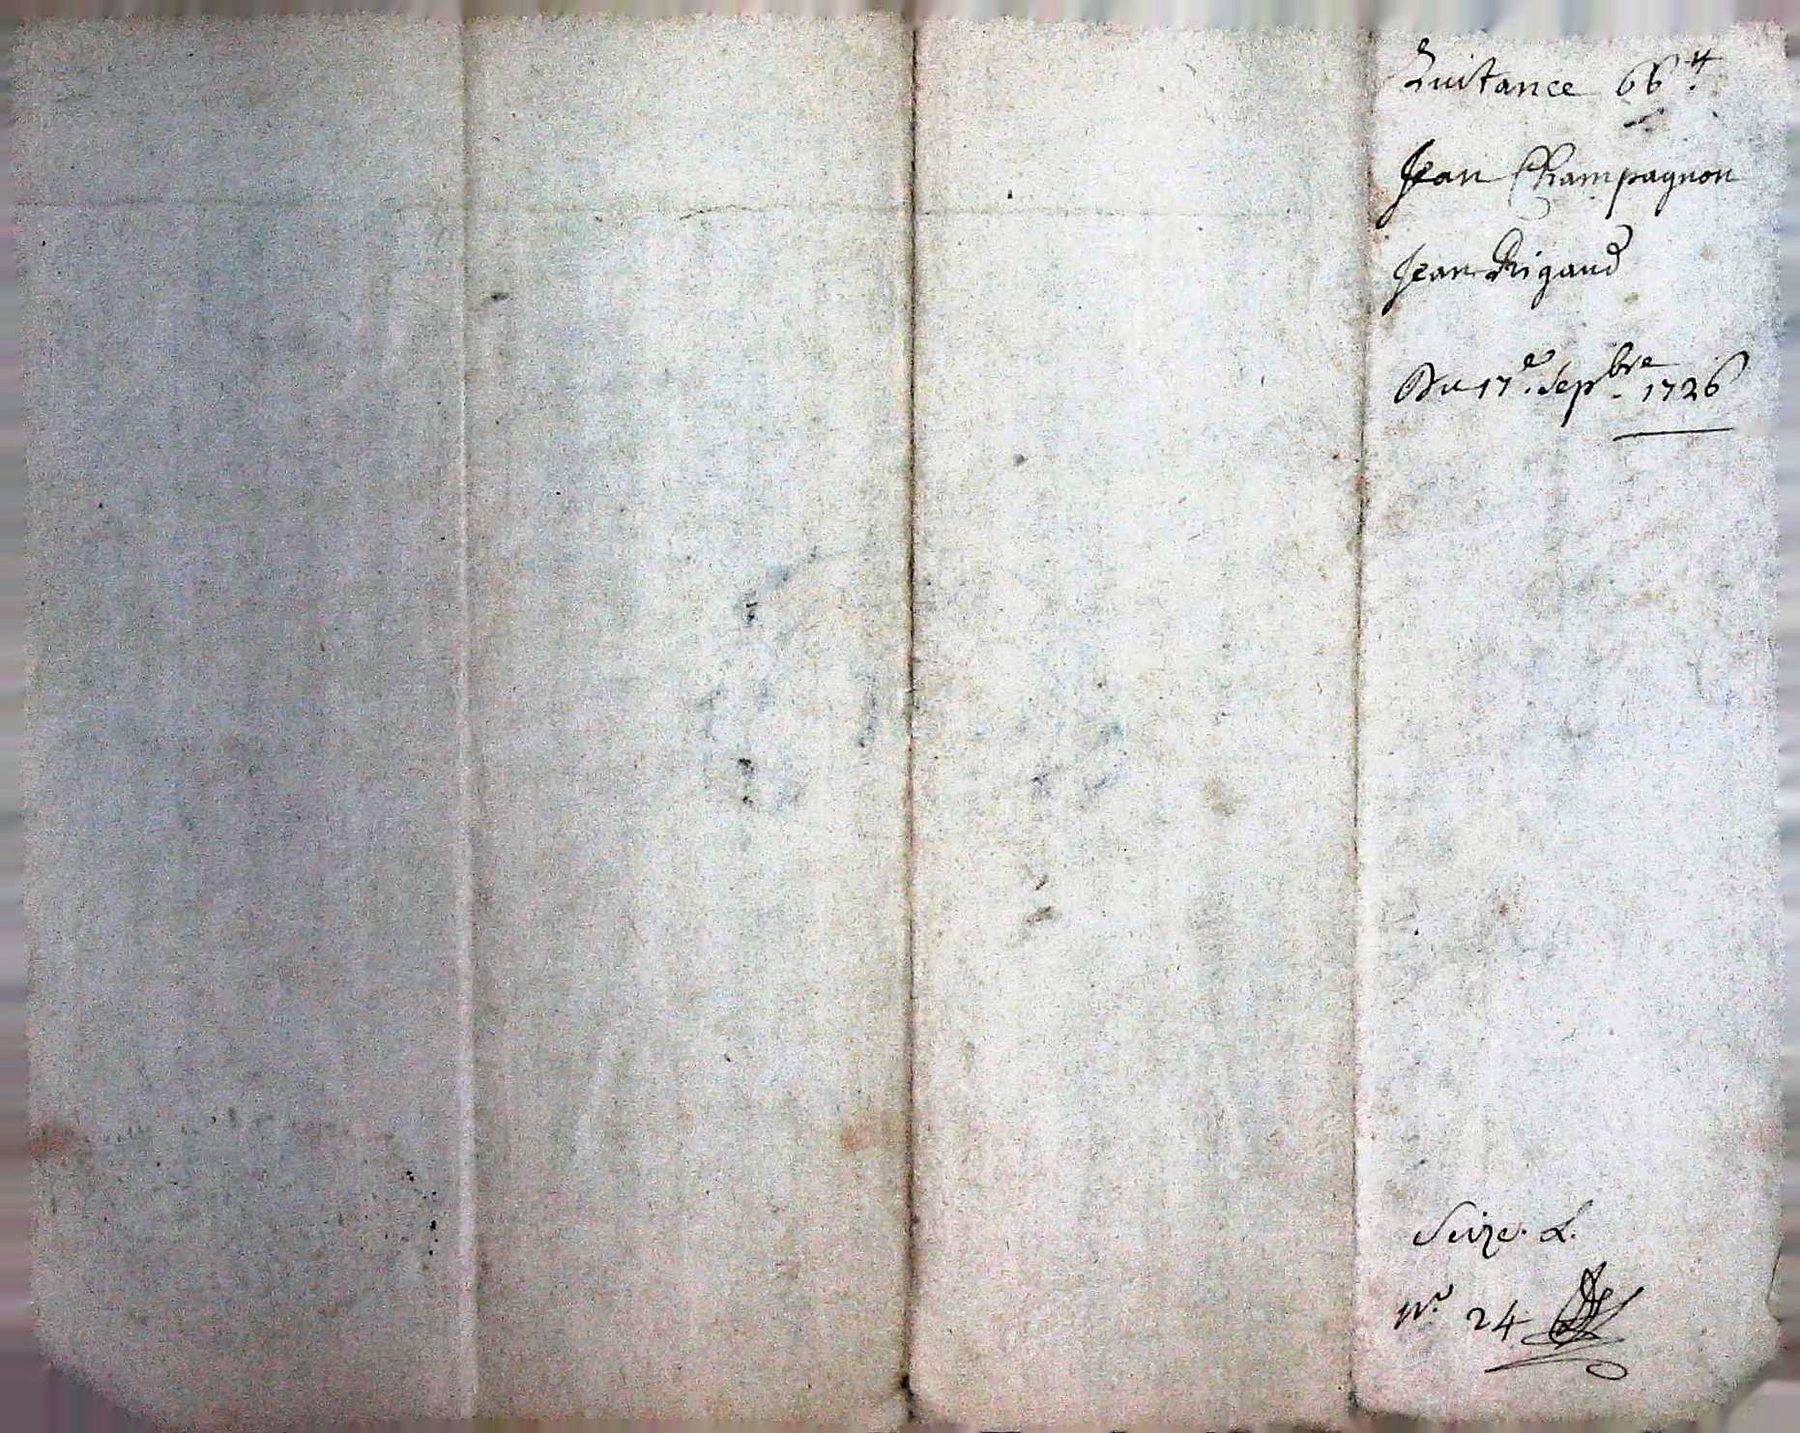 Quitance 66 ₶.
Jean Champagnon
Jean Rigaud
Du 17e. Sepbre. 1726
Seize. L.
No. 24